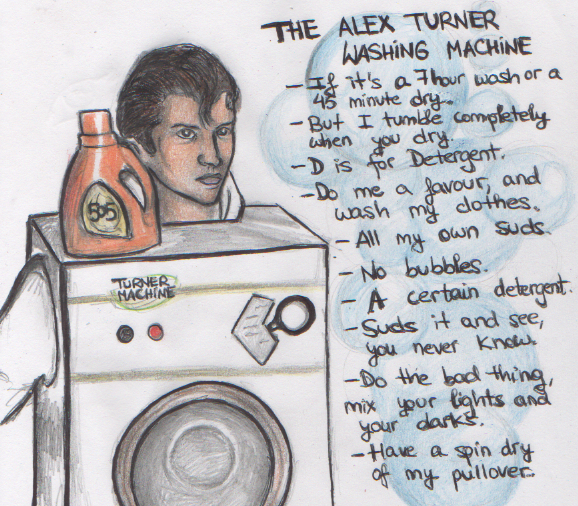 THE ALEX TURNER
WASHING MACHINE
- If it's a 7 hour wash or a
45 minute dry..
- But I tumble completely
when you dry.
- D is for Detergent.
- Do me a favour, and
wash my clothes.
- All my own suds.
- No bubbles.
- A certain detergent.
- Suds it and see,
you never know.
- Do the bad thing,
mix your lights and
your darks.
- Have a spin dry
of my pullover.
505
TURNER
MACHINE